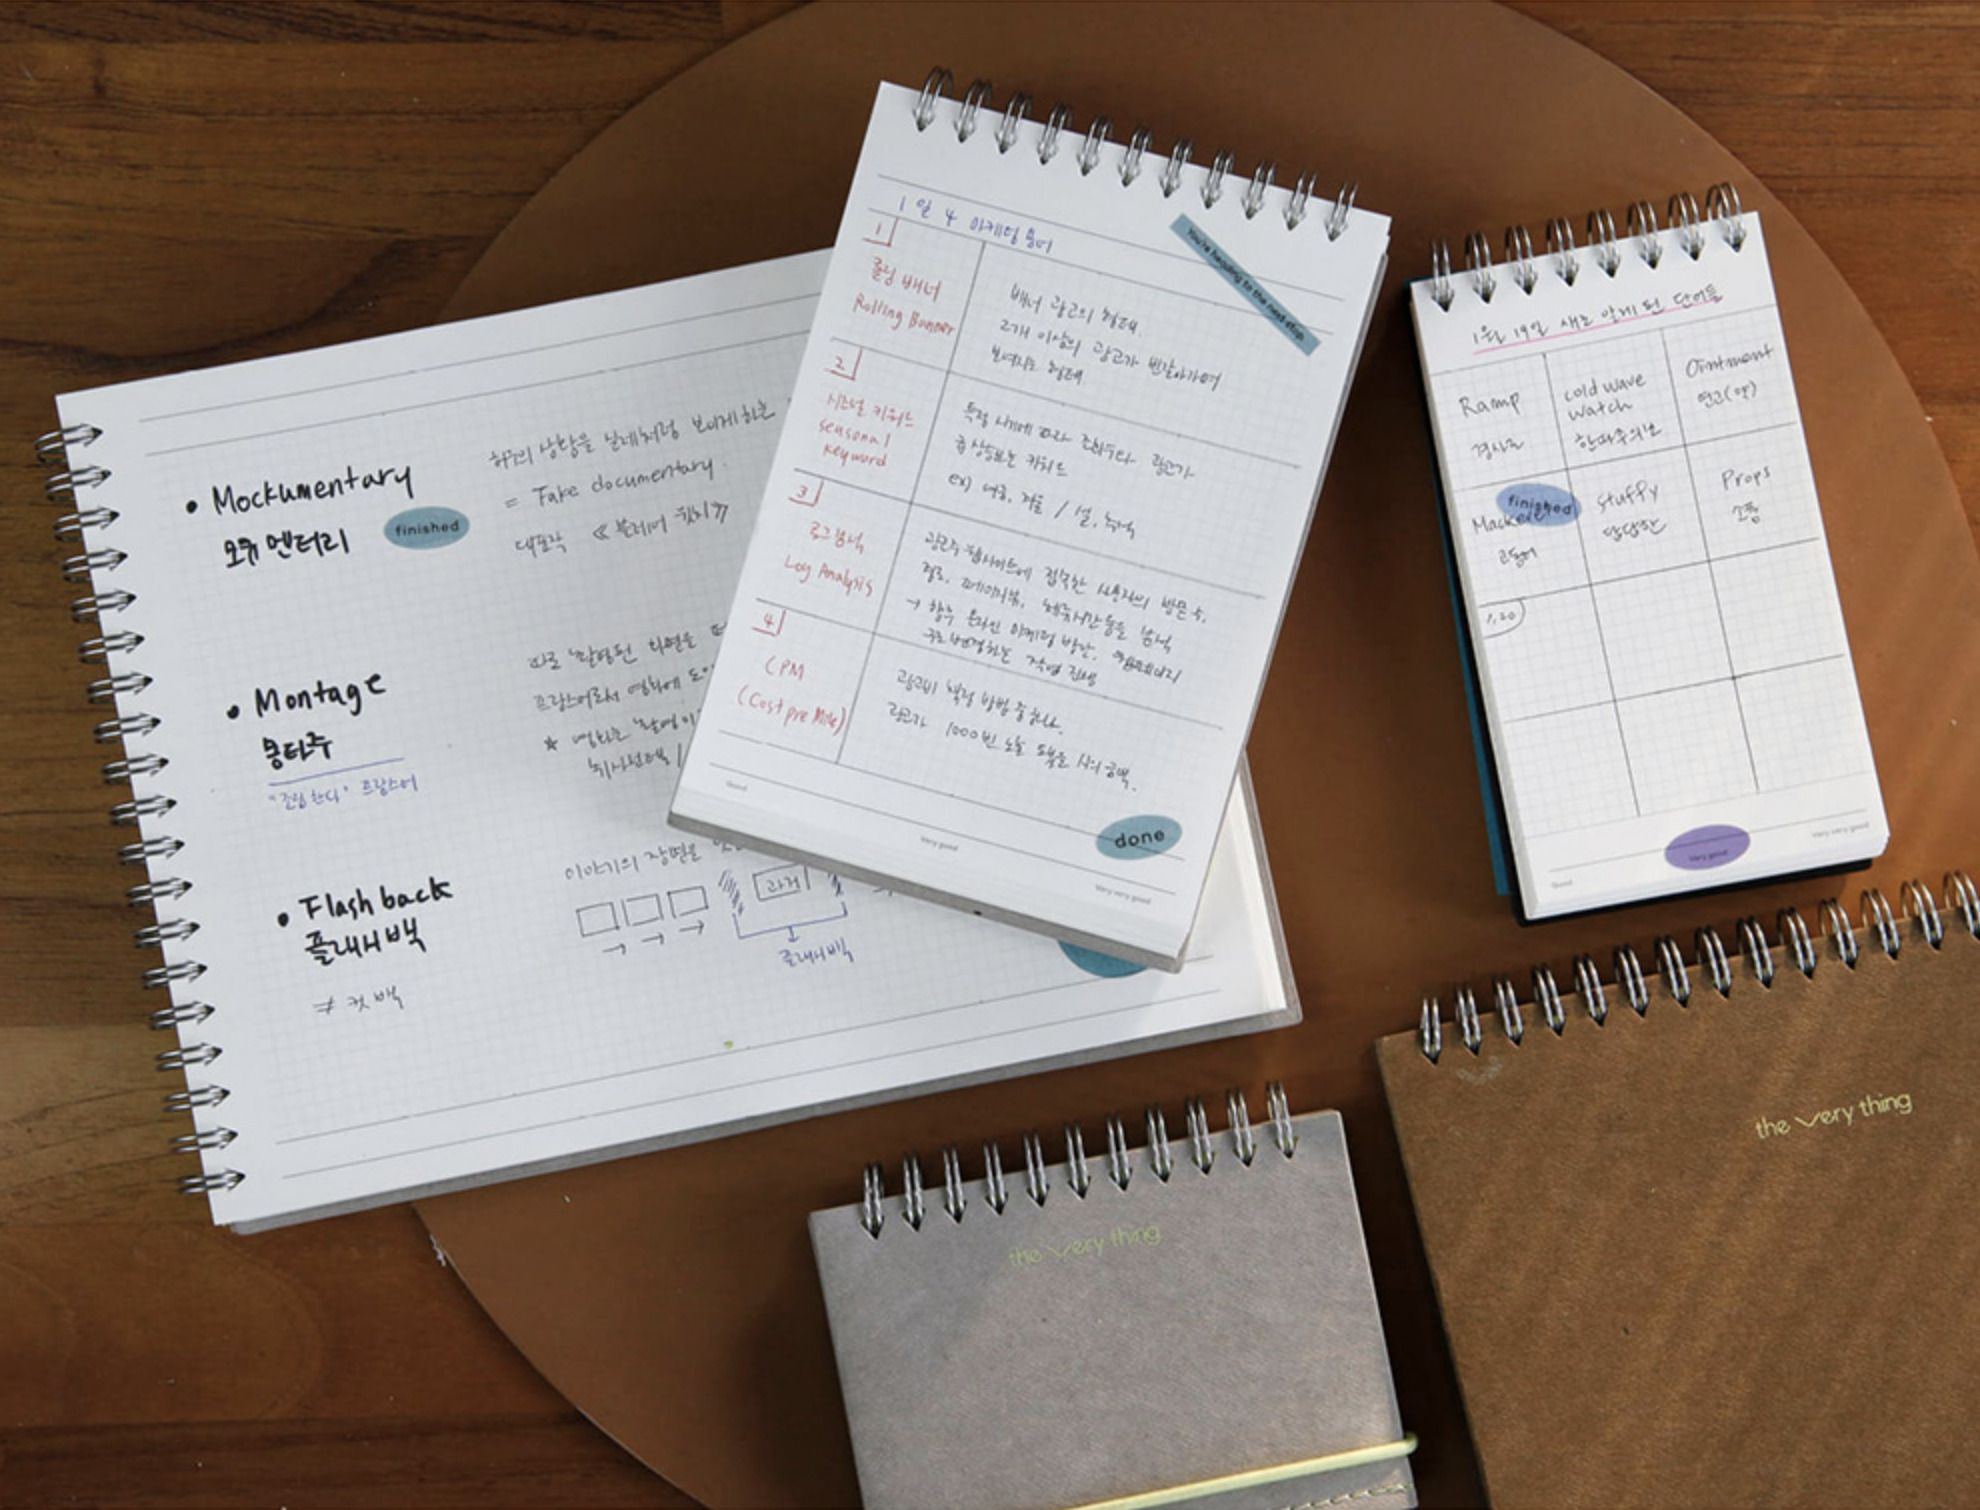 • Mockumentary
모큐멘터리
finished
허구의 상황을 실제처럼 보이게 하는
= Fake documentary.
대표작 《블레어 위치》
• Montage
몽타주
"조립한다" 프랑스어
따로 촬영된 화면을
프랑스어로서 영화에
★ 영화는
• Flashback
플래시백
≠ 컷백
이야기의 장면을
과거
플래시백
1일 4 마케팅 용어
You're heading to the next stop.
1
롤링 배너
Rolling Banner
배너 광고의 형태.
2개 이상의 광고가 번갈아가며
보여지는 형태
2
시즈널 키워드
seasonal
keyword
특정 시기에 따라 조회수나 광고가
급상승하는 키워드
ex) 여름, 겨울 / 설, 추석
3
로그분석
Log Analysis
광고주 웹사이트에 접속한 사용자의 방문 수,
경로, 페이지뷰, 체류시간 등을 분석
→ 향후 온라인 마케팅 방안, 웹페이지
구조 변경하는 작업 진행
4
CPM
(Cost per Mile)
광고비 책정 방법 중 하나.
광고가 1000번 노출 됐을 시의 금액.
Good
Very good
Very very good
done
1월 19일 새로 알게 된 단어들
Ramp
경사로
cold wave
watch
한파주의보
Ointment
연고(약)
finished
고등어
stuffy
답답한
Props
소품
1.20
Good
Very good
Very very good
the very thing
the very thing